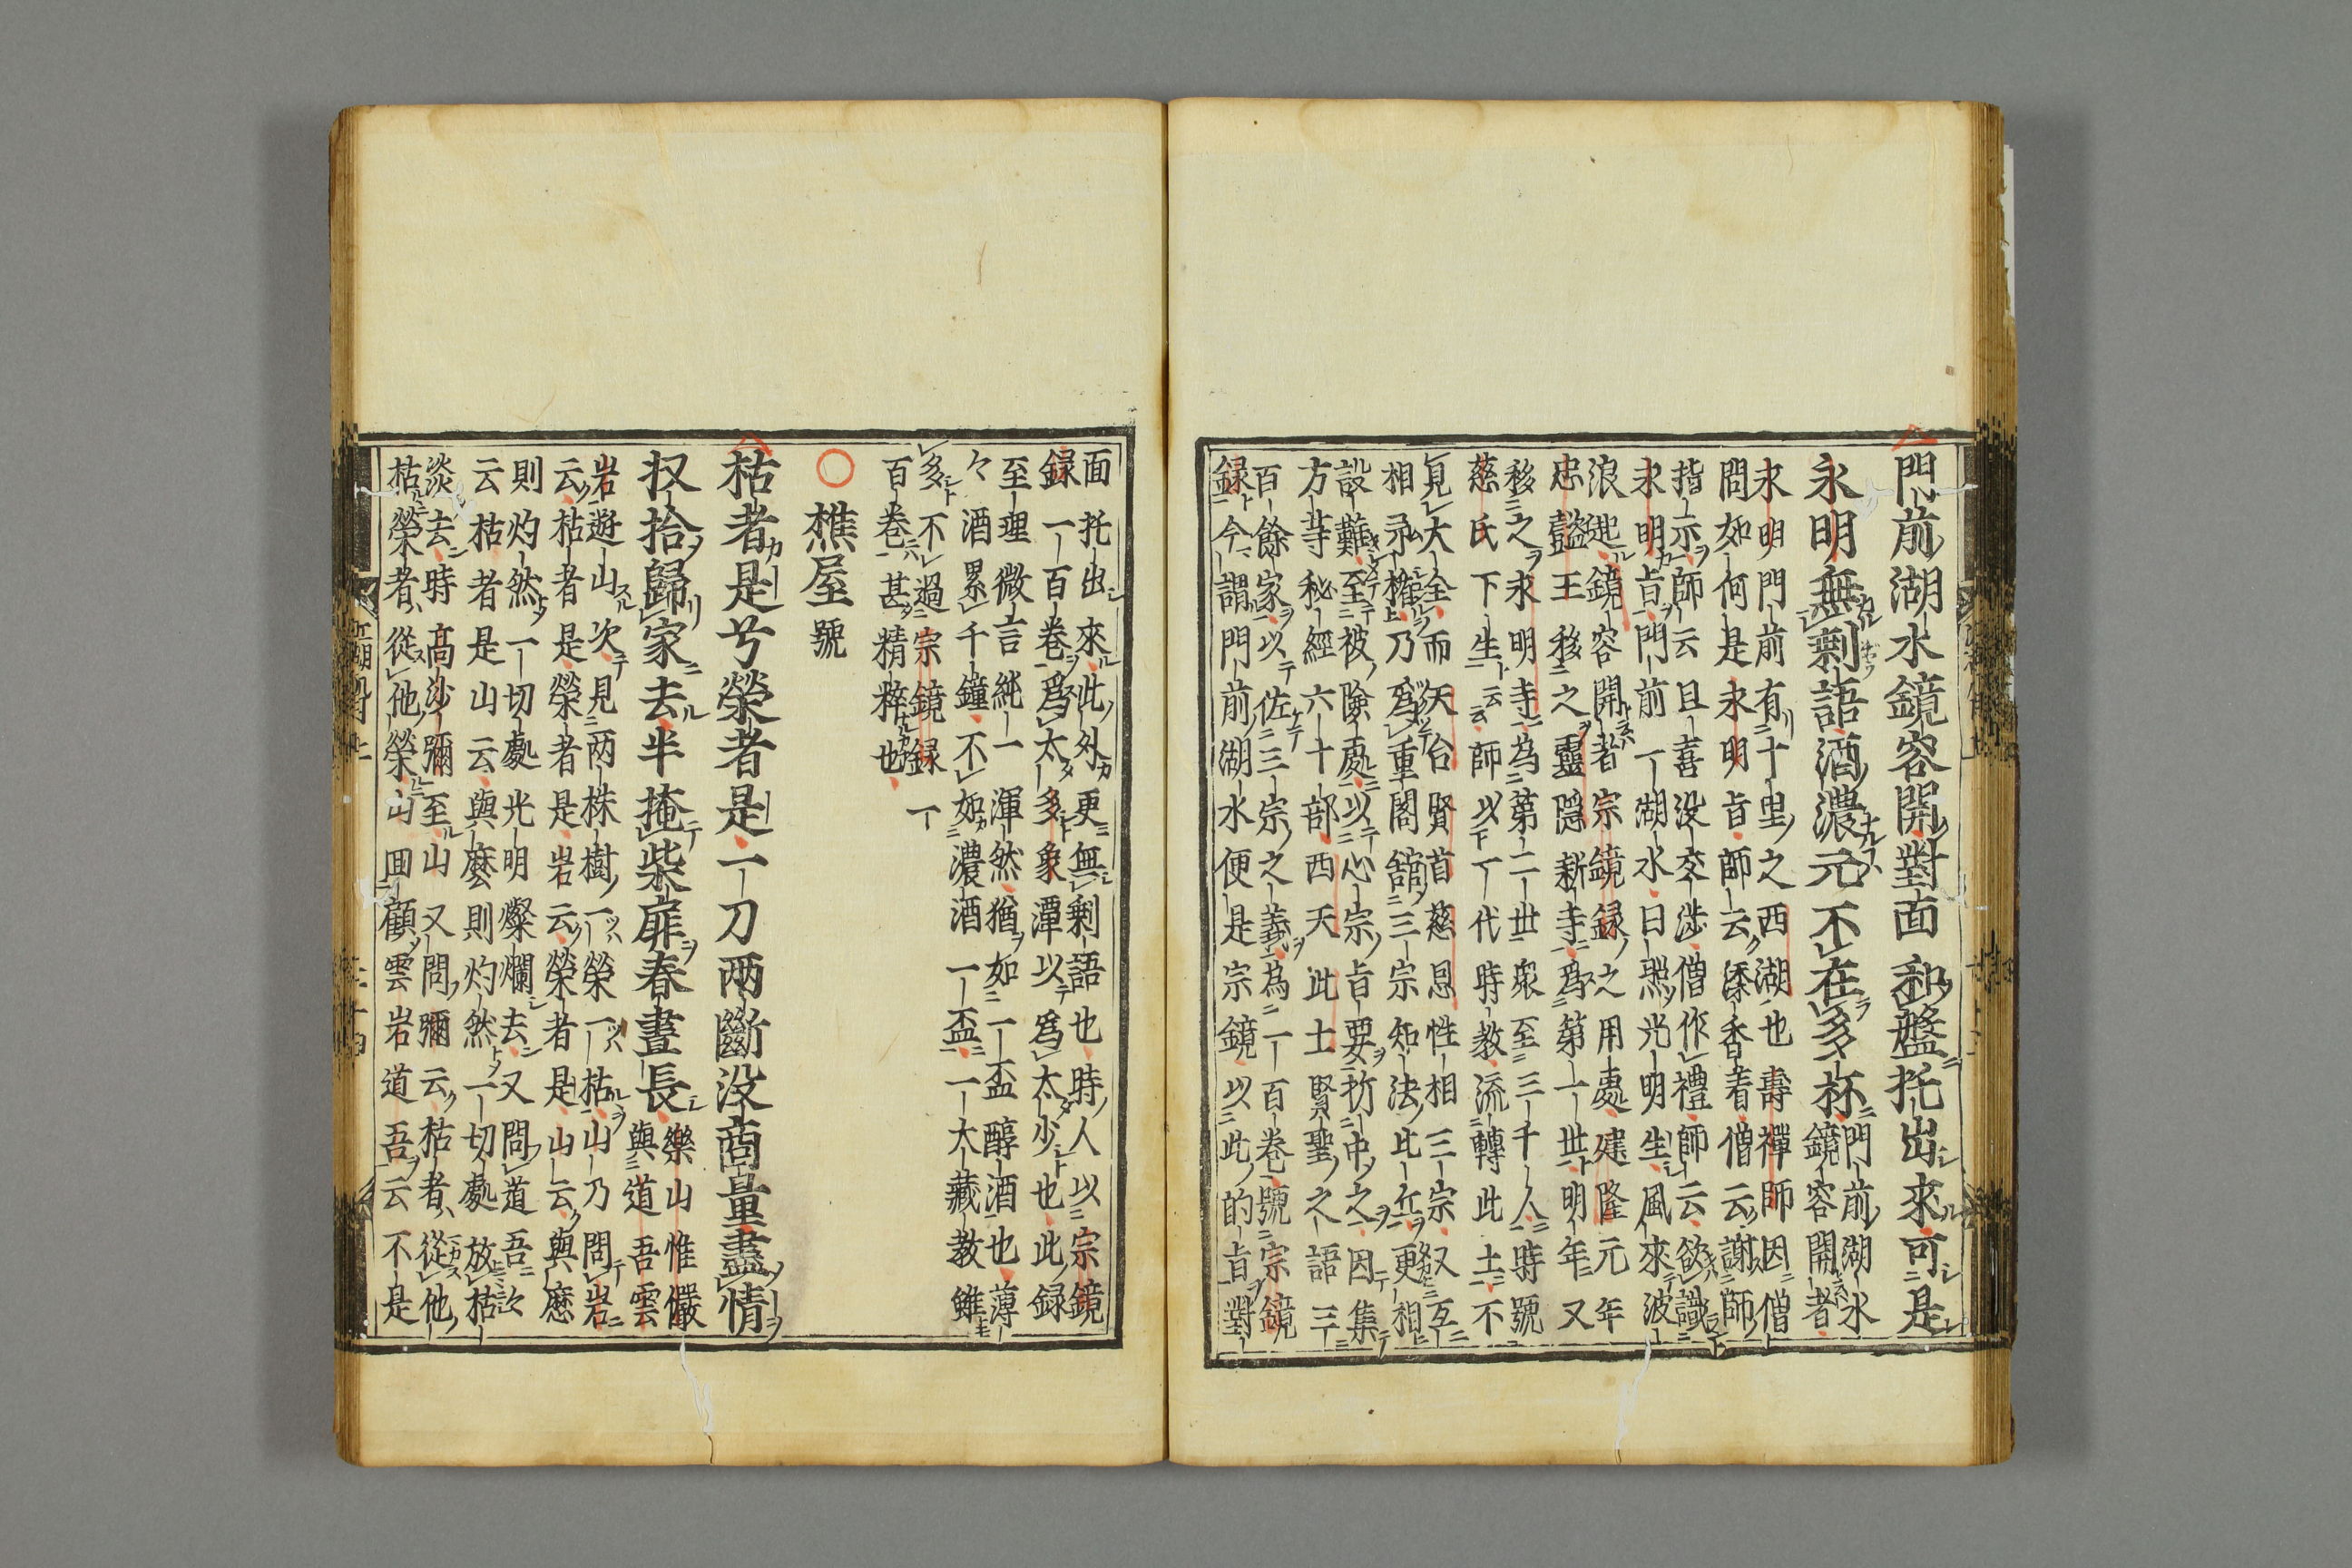 門前湖水鏡容開對面和盤托出來可是
永明無剩語酒濃元不在多杯
門前湖水
鏡容開者
永明門前有十里之西湖也壽禪師因僧
問如何是永明旨師云添香着僧云謝師
指示師云且喜没交渉僧作禮師云欲識
永明旨門前一湖水日照光明生風來波
浪起鏡容開者宗鏡録之用處建隆元年
忠懿王移之靈隠新寺爲第一世明年又
移之永明寺為第二世衆至三千人時號
慈氏下生云云師以丁代時教流轉此土不
見大全而天台賢首慈恩性相三宗又互
相矛楯乃爲重閣舘三宗知法比丘更相
設難至被険處以心宗旨要折中之因集
方等秘經六十部西天此土賢聖之語三
百餘家以佐三宗之義為一百卷號宗鏡
録今謂門前湖水便是宗鏡以此的旨對
面托出來此外更無剩語也時人以宗鏡
録一百卷爲太多象潭以爲太少也此録
至理微言純一渾然猶如一盃醇酒也薄
々酒累千鐘不如濃酒一盃一大藏教雖
多不過宗鏡録一
百卷甚精粹也
○樵屋號
枯者是兮榮者是一刀两斷没商量盡情
収拾歸家去半掩柴扉春晝長
樂山惟儼
與道吾雲
岩遊山次見两株樹一榮一枯山乃問岩
云枯者是榮者是岩云榮者是山云與麽
則灼然一切處光明燦爛去又問道吾次
云枯者是山云與麽則灼然一切處放枯
淡去時高沙彌至山又問彌云枯者從他
枯榮者從他榮山囬顧雲岩道吾云不是